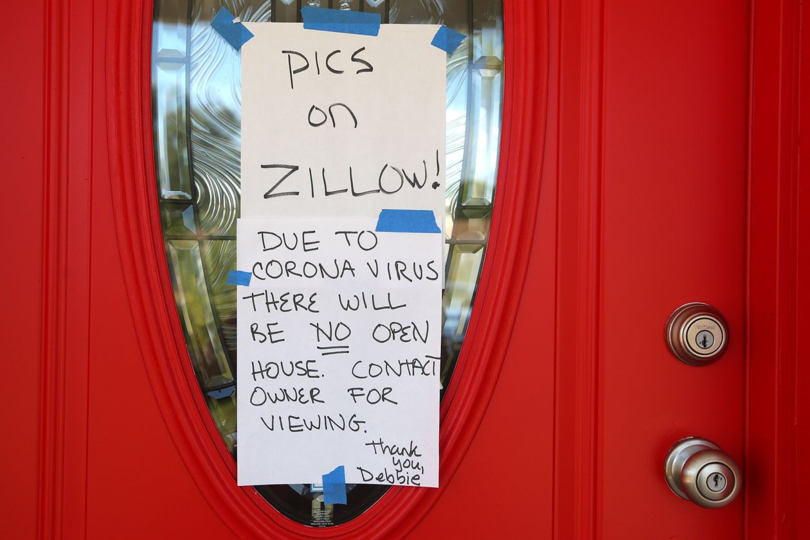 PICS
on
ZILLOW!
DUE TO
CORONA VIRUS
THERE WILL
BE NO OPEN
HOUSE. CONTACT
OWNER FOR
VIEWING.
Thank
you,
Debbie